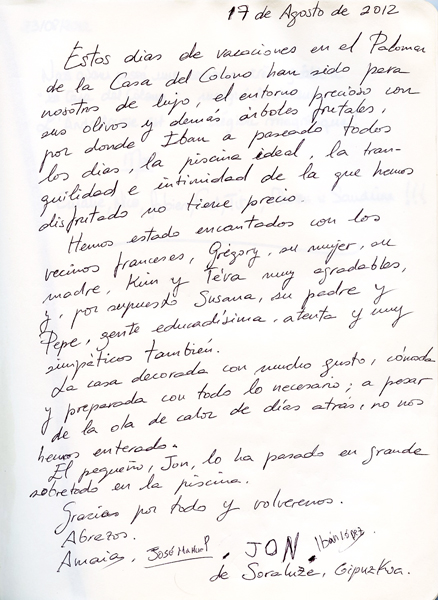 17 de Agosto de 2012
Estos dias de vacaciones en el Palomar
de la Casa del Colono han sido para
nosotros de lujo, el entorno precioso con
sus olivos y demás árboles frutales,
por donde Iban a paseado todos
los dias, la piscina ideal, la tran-
quilidad e intimidad de la que hemos
disfrutado no tiene precio.
Hemos estado encantados con los
vecinos franceses, Grégory, su mujer, su
madre, Kim y Téva muy agradables,
y, por supuesto Susana, su padre y
Pepe, gente educadísima, atenta y muy
simpáticos también.
La casa decorada con mucho gusto, cómoda
y preparada con todo lo necesario; a pesar
de la ola de calor de días atrás, no nos
hemos enterado.
El pequeño, Jon, lo ha pasado en grande
sobretodo en la piscina.
Gracias por todo y volveremos.
Abrazos.
Amaia, José Manuel, JON, Iban López
de Soraluze, Gipuzkoa.